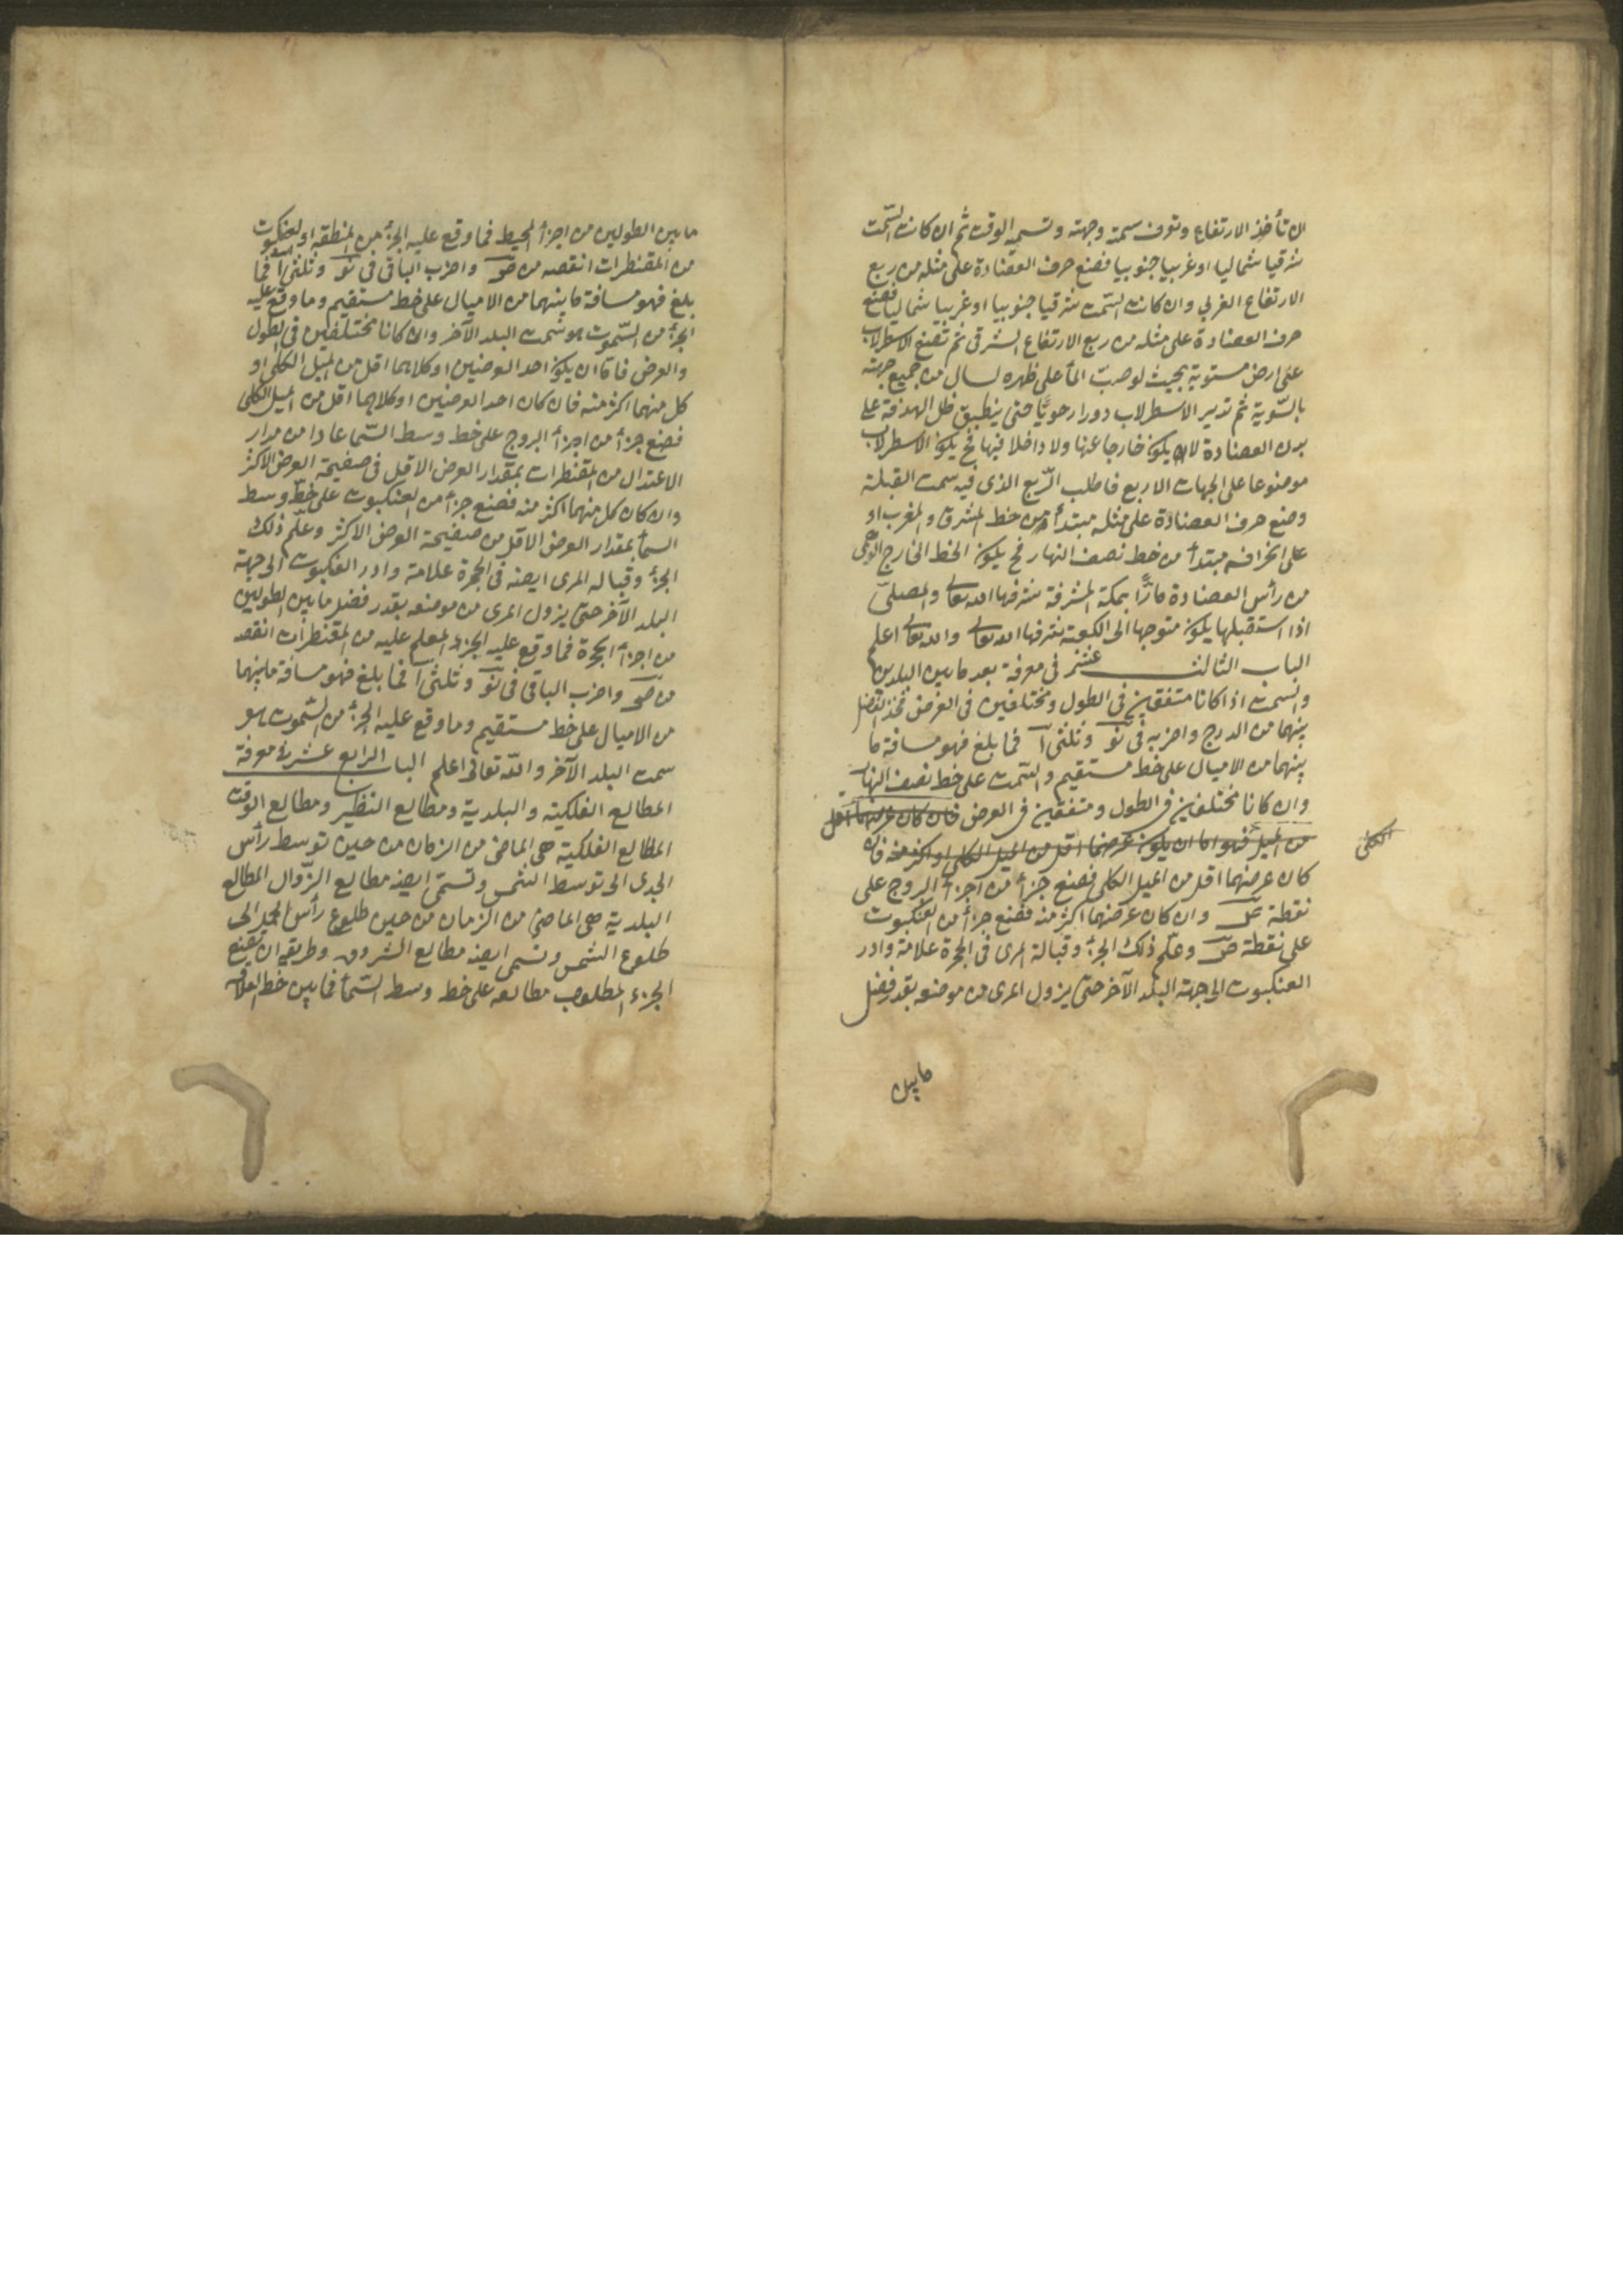 ان تأخذ الارتفاع وتعرف سمته وجهته وتسميه الوقت ثم ان كانت السّمت
شرقيا شماليا او غربيا جنوبيا فضع حرف العضادة على مثله من ربع
الارتفاع الغربي وان كانت السّمت شرقيا جنوبيا او غربيا شماليا فضع
حرف العضادة على مثله من ربع الارتفاع الشرقى ثم تضع الاسطرلاب
على ارض مستوية بحيث لو صبّ المأ على ظهره لسال من جميع جهته
بالسّوية ثم تدير الاسطرلاب دورا رحويّا حتى ينطبق ظل الهدفة على
بدن العضادة لان يكون خارجا عنها ولا داخلا فيها فح يكون الاسطرلاب
موضوعا على الجهات الاربع فاطلب الرّبع الذى فيه سمت القبلة
وضع حرف العضادة على مثله مبتدأ من خط المشرق والمغرب او
على انحرافه مبتدأ من خط نصف النهار فح يكون الخط الخارج الوهمى
من رأس العضادة مارّا بمكة المشرفة شرفها الله تعالى والمصلّى
اذا استقبلها يكون متوجها الى الكعبة شرفها الله تعالى والله تعالى اعلم
الباب الثالث عشر فى معرفة بعد ما بين البلدين
والسمت اذا كانا متفقين فى الطول ومختلفين فى العرض فخذ الفضل
بينهما من الدرج واضربه فى نو وثلثى ا فما بلغ فهو مسافة ما
بينهما من الاميال على خط مستقيم والسّمت على خط نصف النهار
وان كانا مختلفين فى الطول ومتفقين فى العرض فان كان عرضهما اقل
من الميل فهو اما ان يكون عرضهما اقل من الميل الكلى او اكثر منه فان
الكلى
كان عرضهما اقل من الميل الكلى فضع جزأ من اجزأ البروج على
نقطة وان كان عرضهما اكثر منه فضع جزأ من العنكبوت
على نقطة ص وعلّم ذلك الجزء وقبالة المرى فى الحجرة علامة وادر
العنكبوت الى جهة البلد الآخر حتى يزول المرى من موضعه بقدر فضل
ما بين
ما بين الطولين من اجزأ المحيط فما وقع عليه الجزء من المنطقة او العنكبوت
من المقنطرات انقصه من ص واضرب الباقى فى نو وثلثى ا فما
بلغ فهو مسافة ما بينهما من الاميال على خط مستقيم وما وقع عليه
الجزء من السّموت هو سمت البلد الآخر وان كانا مختلفين فى الطول
والعرض فاما ان يكون احد العرضين او كلاهما اقل من الميل الكلى او
كل منهما اكثر منه فان كان احد العرضين او كلاهما اقل من الميل الكلى
فضع جزأ من اجزأ البروج على خط وسط السّما عادا من مدار
الاعتدال من المقنطرات بمقدار العرض الاقل فى صفيحة العرض الاكثر
وان كان كل منهما اكثر منه فضع جزأ من العنكبوت على خطّ وسط
السمأ بمقدار العرض الاقل من صفيحة العرض الاكثر وعلّم ذلك
الجزء وقباله المرى ايضه فى الحجرة علامة وادر العنكبوت الى جهة
البلد الآخر حتى يزول المرى من موضعه بقدر فضل ما بين الطولين
من اجزأ الحجرة فما وقع عليه الجزء المعلم عليه من المقنطرات انقصه
من ص واضرب الباقى فى نو وثلثى ا فما بلغ فهو مسافة ما بينهما
من الاميال على خط مستقيم وما وقع عليه الجزء من السّموت هو
سمت البلد الآخر والله تعالى اعلم الباب الرابع عشر فى معرفة
المطالع الفلكية والبلدية ومطالع النظير ومطالع الوقت
المطالع الفلكية هى الماضى من الزمان من حين توسط رأس
الجدى الى توسط الشمس وتسمّى ايضه مطالع الزّوال المطالع
البلدية هى الماضى من الزمان من حين طلوع رأس الحمل الى
طلوع الشمس وتسمى ايضه مطالع الشروق وطريقه ان تضع
الجزء المطلوب مطالعه على خط وسط السّمأ فما بين خط العلاقة